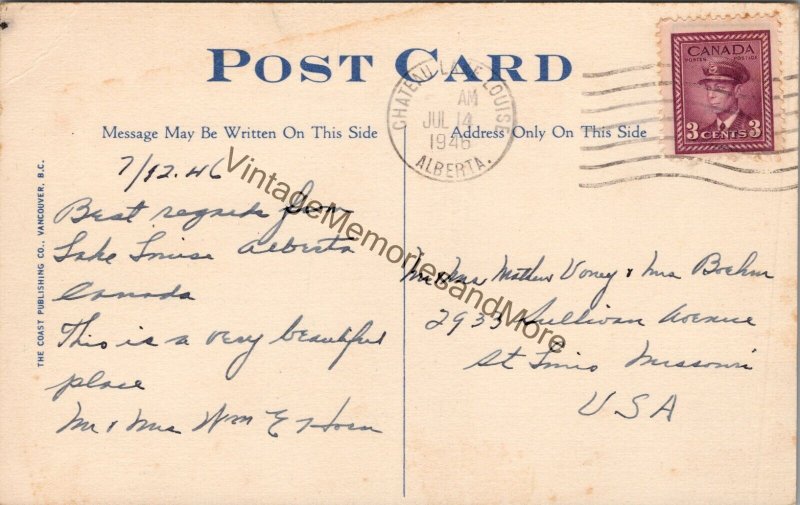 POST CARD
CHATEAU LAKE LOUISE
AM
JUL 14
1946
ALBERTA.
CANADA
POSTES POSTAGE
3 CENTS 3
Message May Be Written On This Side
Address Only On This Side
THE COAST PUBLISHING CO., VANCOUVER, B.C.
7/12.46
Best regards from
Lake Louise Alberta
Canada
This is a very beautiful
place
Mr & Mrs Wm E Horn
Mr & Mrs Mathew Voney & Mrs Boehm
2933 Sullivan Avenue
St Louis Missouri
USA
VintageMemoriesandMore